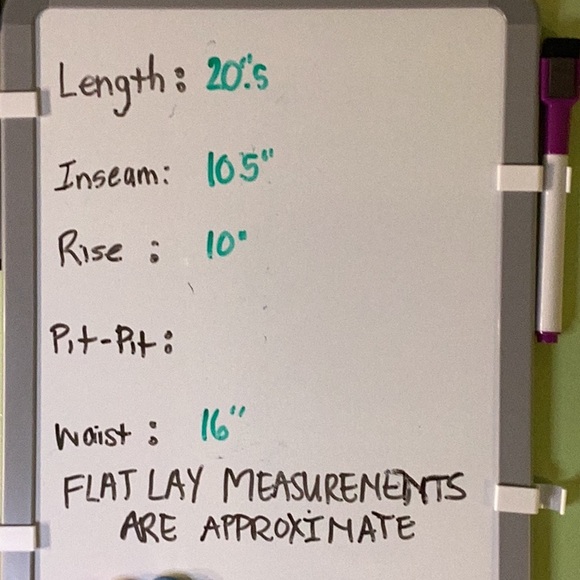 Length: 20".5
Inseam: 10 5"
Rise : 10"
Pit-Pit:
Waist : 16"
FLAT LAY MEASUREMENTS
ARE APPROXIMATE